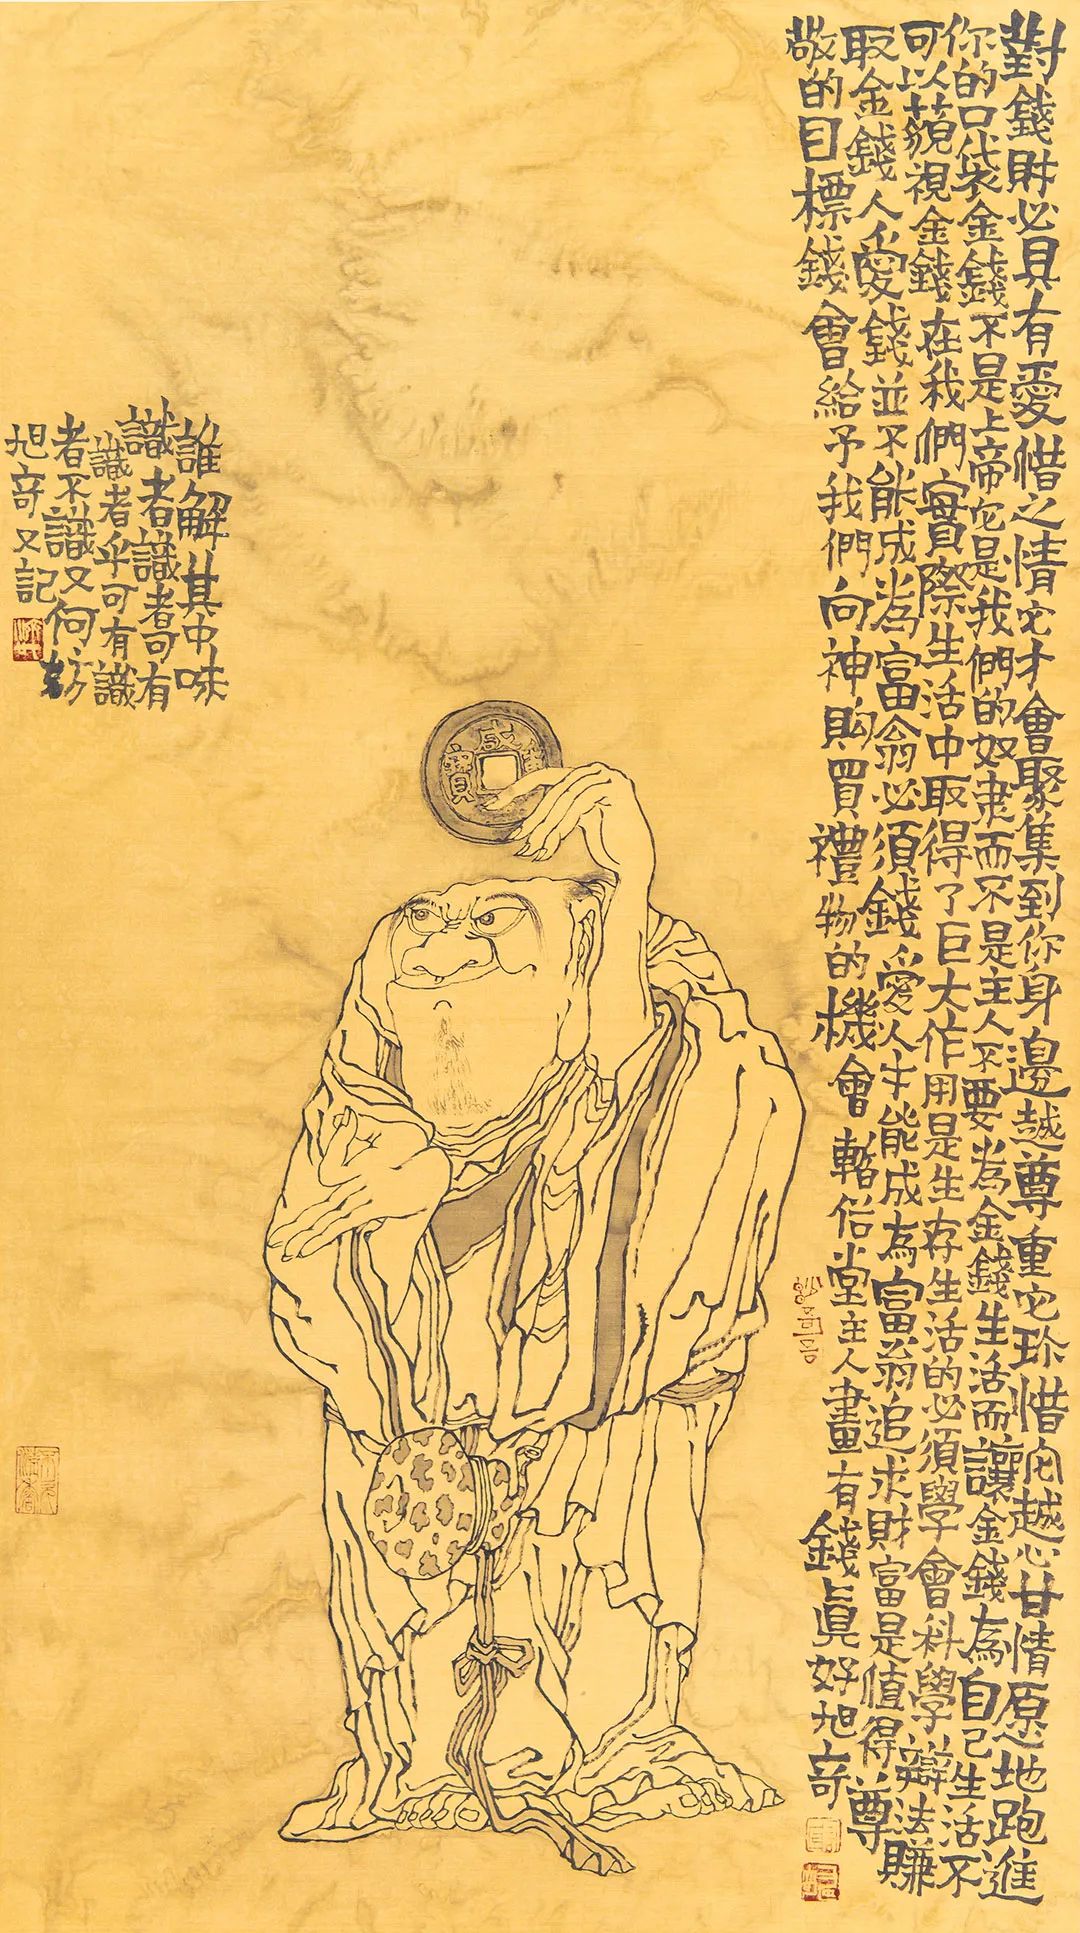 對錢財必具有愛惜之情它才會聚集到你身邊越尊重它珍惜它越心甘情愿地跑進
你的口袋金錢不是上帝它是我們的奴隶而不是主人不要為金錢生活而讓金錢為自己生活不
可以藐視金錢在我們實際生活中取得了巨大作用是生存生活的必須學會科學辯法賺
取金錢人人愛錢並不能成為富翁必須錢愛人才能成為富翁追求財富是值得尊
敬的目標錢會給予我們向神購買禮物的機會 暫俗堂主人畫有錢眞好旭奇
誰解其中味
識者識者可有
識者乎可有識
者不識又何妨
旭奇又記
咸 寶